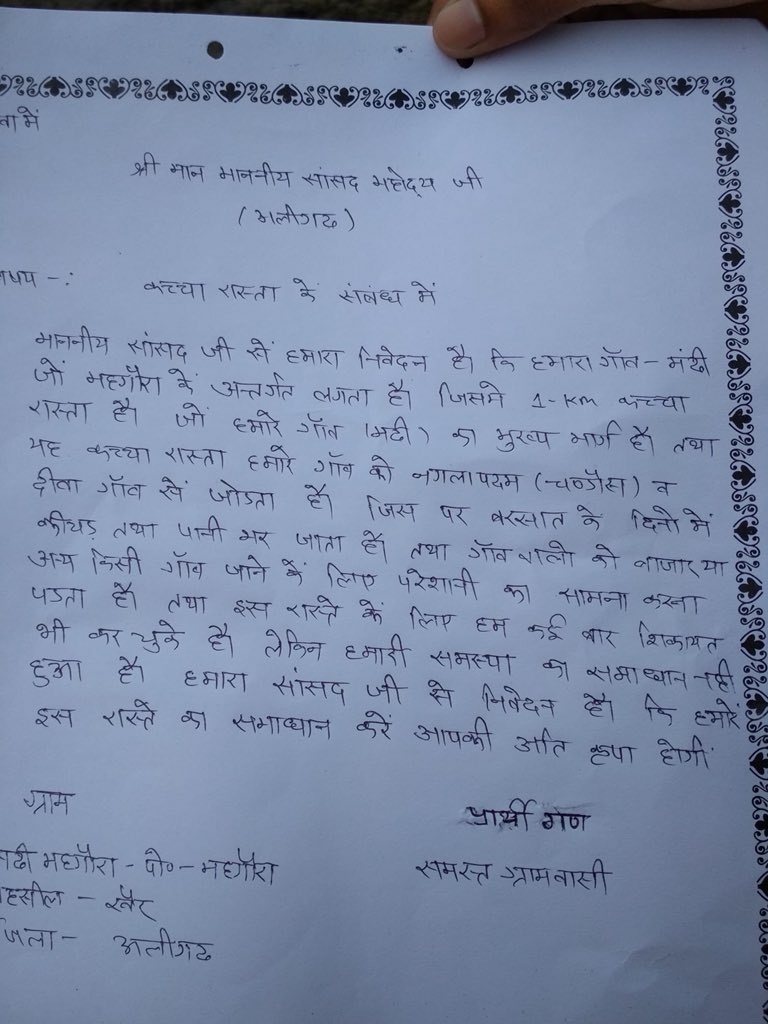 वा में
श्री मान माननीय सांसद महोदय जी
(अलीगढ)
षय -: कच्चा रास्ता के संबंध में
माननीय सांसद जी से हमारा निवेदन है। कि हमारा गाँव - मढी
जो महगौरा के अन्तर्गत लगता है। जिसमे 1-km कच्चा
रास्ता है। जो हमारे गाँव (मढी) का मुख्य मार्ग है। तथा
यह कच्चा रास्ता हमारे गाँव को नगला पदम (चण्डौस) व
दीवा गाँव से जोडता है। जिस पर बरसात के दिनो में
कीचड़ तथा पानी भर जाता है। तथा गाँव वालो को बाजार या
अन्य किसी गाँव जाने के लिए परेशानी का सामना करना
पडता है। तथा इस रास्ते के लिए हम कई बार शिकायत
भी कर चुके है। लेकिन हमारी समस्या का समाधान नही
हुआ है। हमारा सांसद जी से निवेदन है। कि हमारे
इस रास्ते का समाधान करें आपकी अति कृपा होगी
ग्राम
प्रार्थी गण
मढी महगौरा - पो० - महगौरा
समस्त ग्रामवासी
हसील - खैर
जिला - अलीगढ